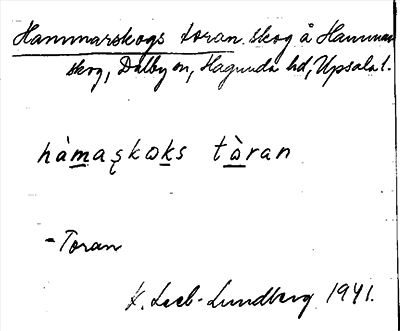 Hammarskogs toran. skog å Hammar
skog, Dalby sn, Hagunda hd, Upsala l.
hàmaʂkωks tὼran
- Toran
K. Leeb-Lundberg 1941.